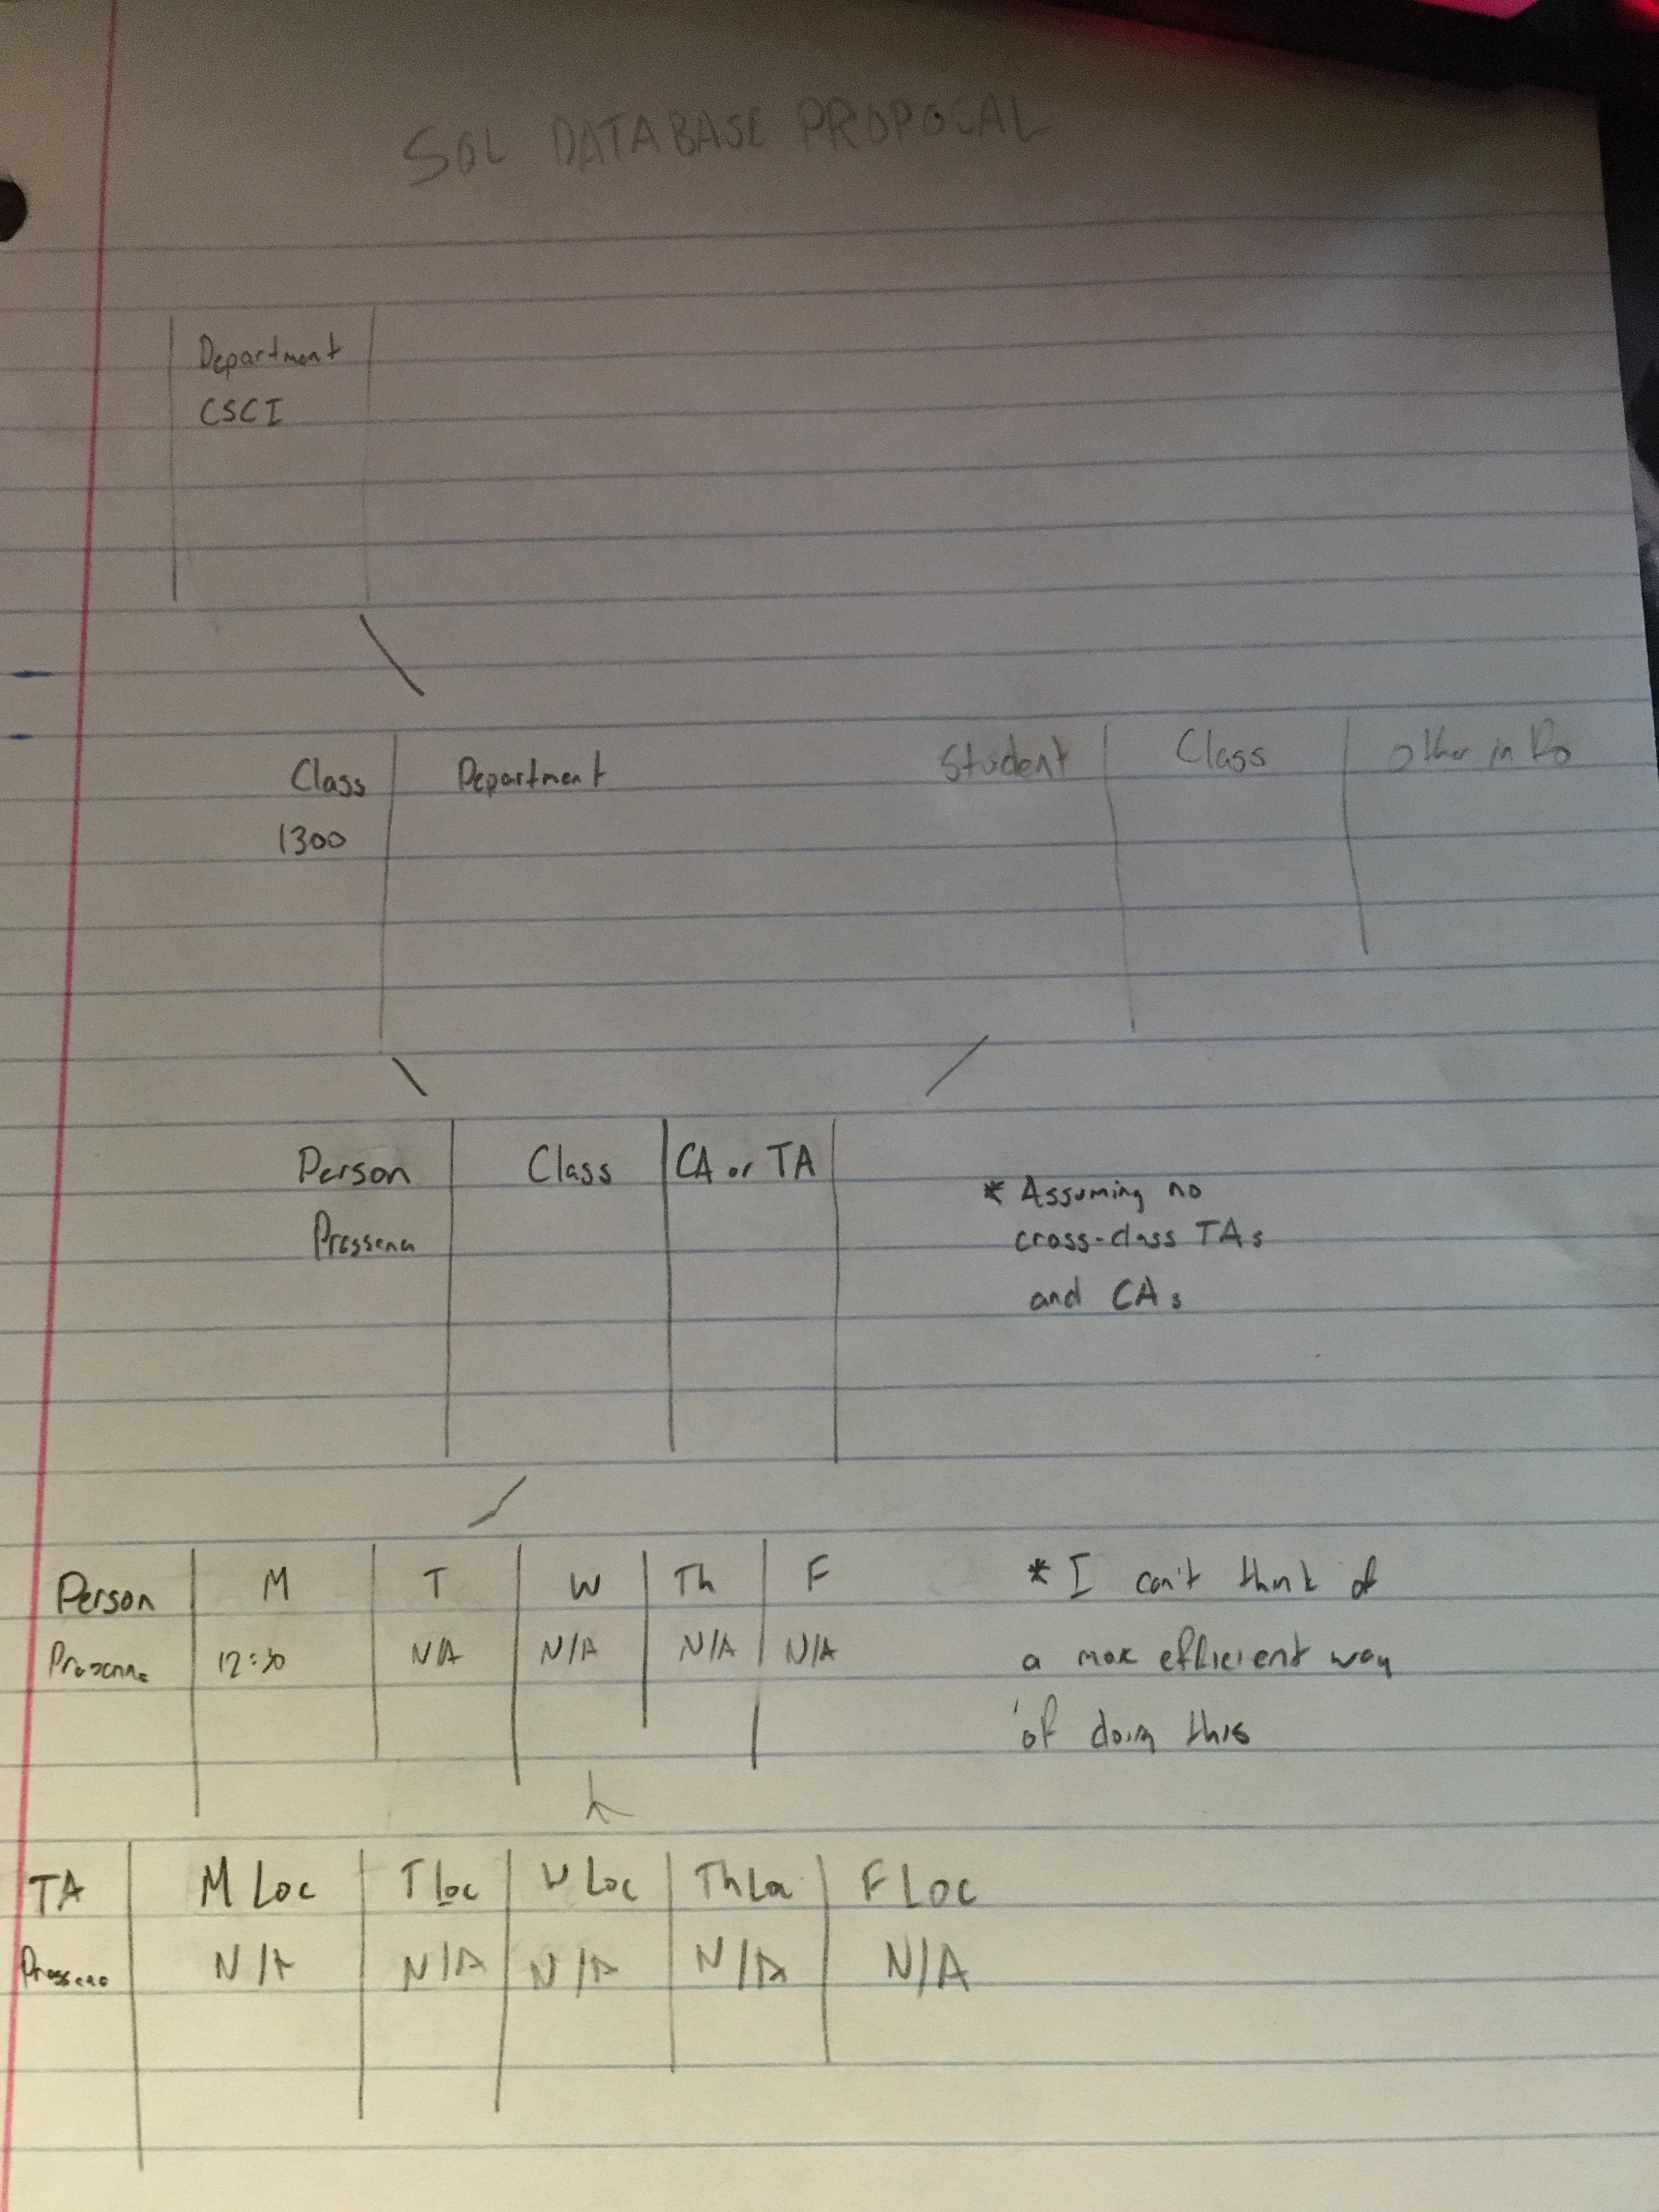 SQL DATABASE PROPOSAL
Department
CSCI
Class Department Student Class Other info
1300
Person Class CA or TA
* Assuming no
cross-class TAs
and CAs
Person M T W Th F
12:30 N/A N/A N/A N/A
* I can't think of
a more efficient way
of doing this
TA M Loc T Loc W Loc Th Loc F Loc
N/A N/A N/A N/A N/A